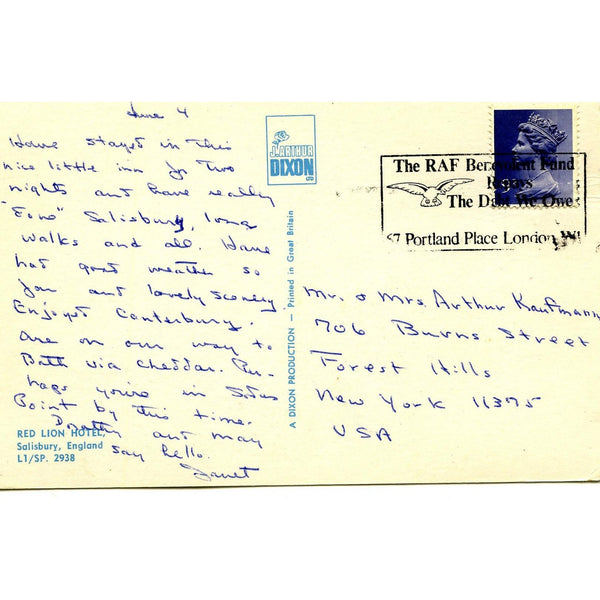 June 4
Have stayed in this
nice little inn for two
nights and have really
"
Salisbury, long
walks and all. Have
had good weather so
far and lovely scenery
Enjoyed Canterbury.
are on our way to
Bath via Cheddar. Per-
haps you're in
Point by this time.
Dorothy and may
say hello.
Janet
RED LION HOTEL,
Salisbury, England
L1/SP. 2938
J. ARTHUR
DIXON
A DIXON PRODUCTION — Printed in Great Britain
The RAF Benevolent Fund
Repays
The Debt We Owe
67 Portland Place London W1
Mr. & Mrs. Arthur Kaufmann
706 Burns Street
Forest Hills
New York 11375
USA